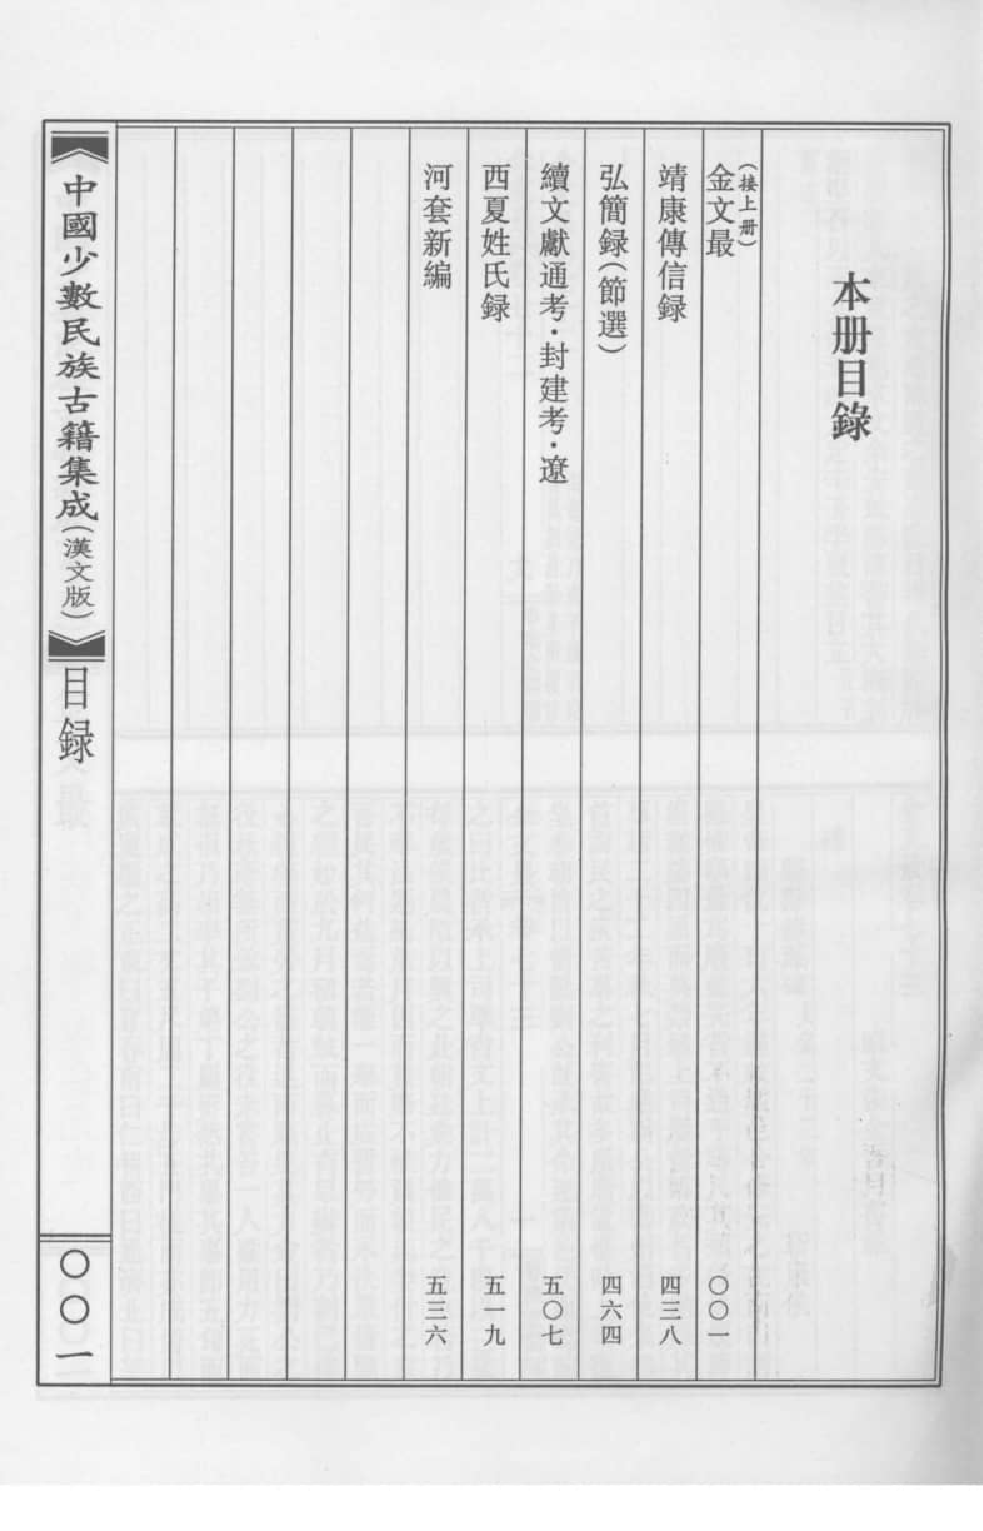 本册目錄
(接上册)
金文最
〇〇一
靖康傳信録
四三八
弘簡録(節選)
四六四
續文獻通考·封建考·遼
五〇七
西夏姓氏録
五一九
河套新編
五三六
中國少數民族古籍集成(漢文版)
目録
〇〇一